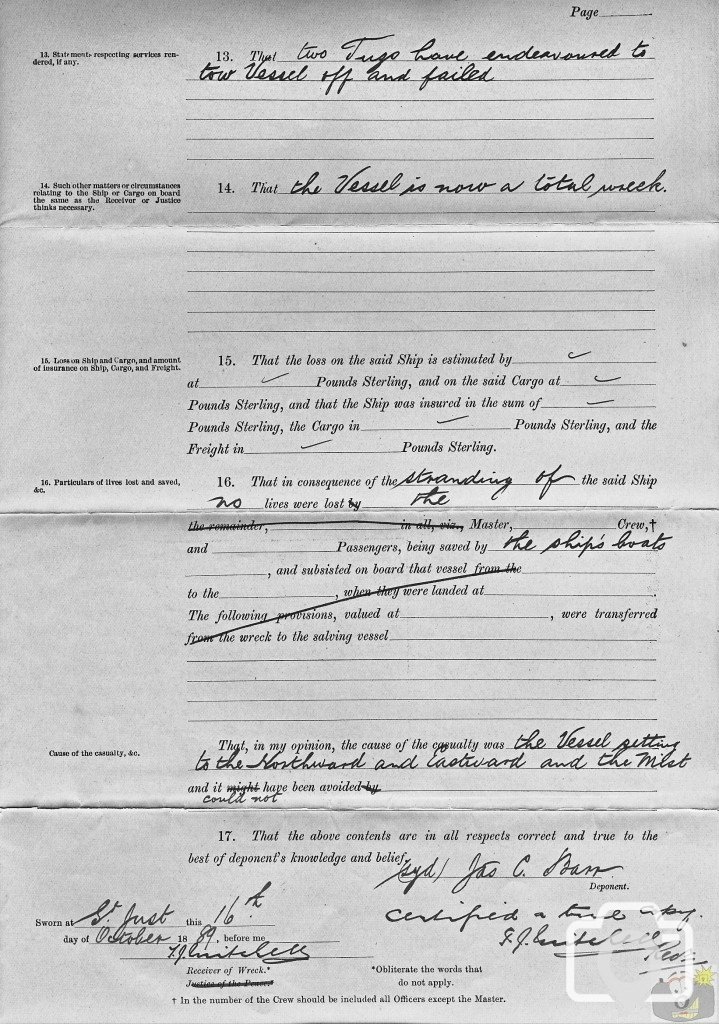 Page
13. Statements respecting services rendered, if any.
13. That two Tugs have endeavoured to
tow Vessel off and failed
14. Such other matters or circumstances relating to the Ship or Cargo on board the same as the Receiver or Justice thinks necessary.
14. That the Vessel is now a total wreck.
15. Loss on Ship and Cargo, and amount of insurance on Ship, Cargo, and Freight.
15. That the loss on the said Ship is estimated by
at Pounds Sterling, and on the said Cargo at
Pounds Sterling, and that the Ship was insured in the sum of
Pounds Sterling, the Cargo in Pounds Sterling, and the
Freight in Pounds Sterling.
16. Particulars of lives lost and saved, &c.
16. That in consequence of the stranding of the said Ship
no lives were lost by the
the remainder, in all, viz., Master, Crew,†
and Passengers, being saved by the ship's boats
, and subsisted on board that vessel from the
to the , when they were landed at .
The following provisions, valued at , were transferred
from the wreck to the salving vessel
Cause of the casualty, &c.
That, in my opinion, the cause of the casualty was the Vessel setting
to the Northward and Eastward and the Mist
and it might have been avoided by
could not
17. That the above contents are in all respects correct and true to the
best of deponent's knowledge and belief.
Sgd/ Jas C. Barr
Deponent.
Sworn at St. Just this 16th
day of October 1889, before me
F.J. Mitchell
Receiver of Wreck.*
Justice of the Peace.*
certified a true copy.
F.J. Mitchell
*Obliterate the words that
do not apply.
† In the number of the Crew should be included all Officers except the Master.